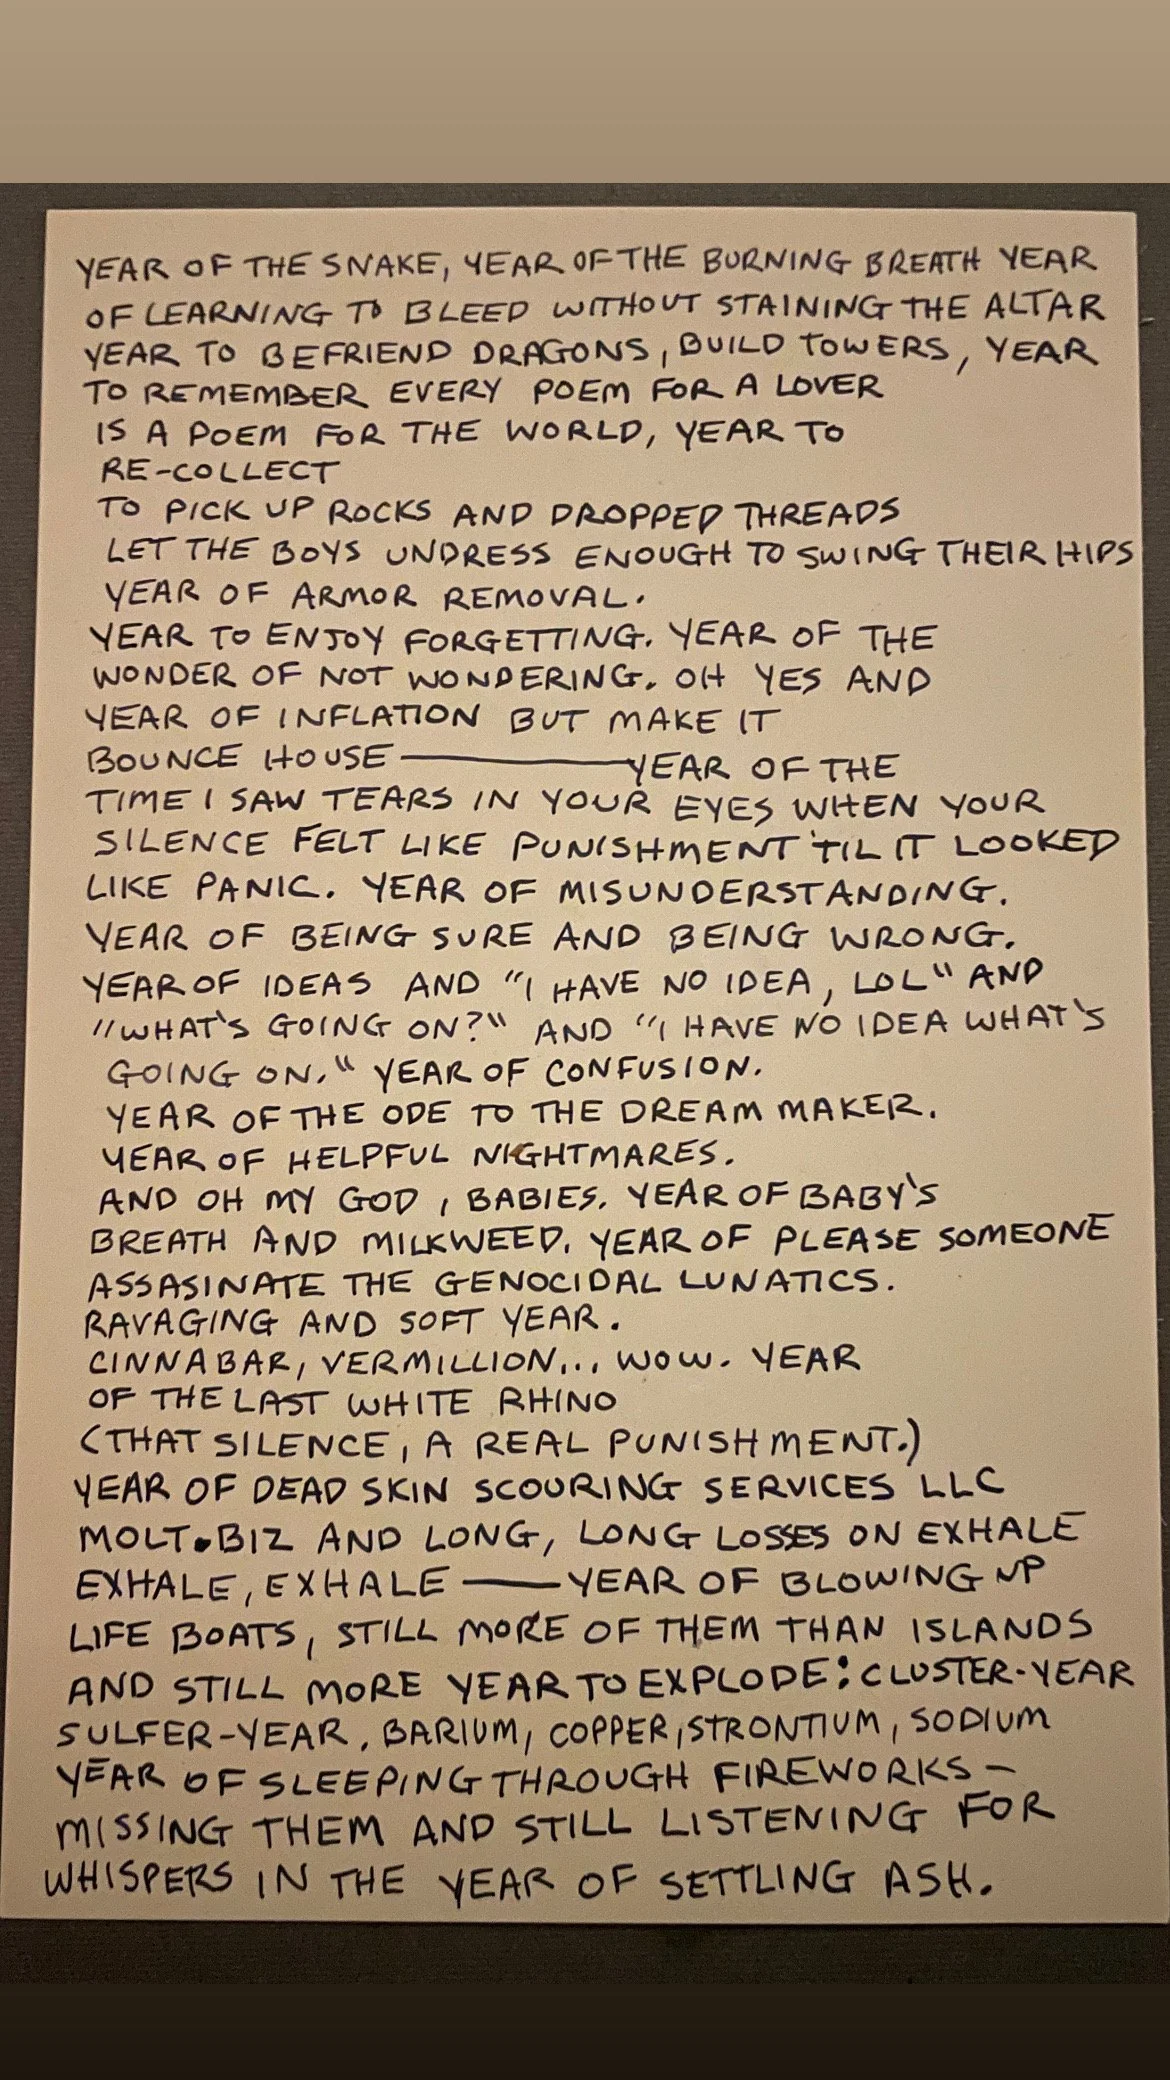 YEAR OF THE SNAKE, YEAR OF THE BURNING BREATH YEAR
OF LEARNING TO BLEED WITHOUT STAINING THE ALTAR
YEAR TO BEFRIEND DRAGONS, BUILD TOWERS, YEAR
TO REMEMBER EVERY POEM FOR A LOVER
IS A POEM FOR THE WORLD, YEAR TO
RE-COLLECT
TO PICK UP ROCKS AND DROPPED THREADS
LET THE BOYS UNDRESS ENOUGH TO SWING THEIR HIPS
YEAR OF ARMOR REMOVAL.
YEAR TO ENJOY FORGETTING. YEAR OF THE
WONDER OF NOT WONDERING. OH YES AND
YEAR OF INFLATION BUT MAKE IT
BOUNCE HOUSE —— YEAR OF THE
TIME I SAW TEARS IN YOUR EYES WHEN YOUR
SILENCE FELT LIKE PUNISHMENT 'TIL IT LOOKED
LIKE PANIC. YEAR OF MISUNDERSTANDING.
YEAR OF BEING SURE AND BEING WRONG.
YEAR OF IDEAS AND "I HAVE NO IDEA, LOL" AND
"WHAT'S GOING ON?" AND "I HAVE NO IDEA WHAT'S
GOING ON." YEAR OF CONFUSION.
YEAR OF THE ODE TO THE DREAM MAKER.
YEAR OF HELPFUL NIGHTMARES.
AND OH MY GOD, BABIES. YEAR OF BABY'S
BREATH AND MILKWEED. YEAR OF PLEASE SOMEONE
ASSASINATE THE GENOCIDAL LUNATICS.
RAVAGING AND SOFT YEAR.
CINNABAR, VERMILLION... WOW. YEAR
OF THE LAST WHITE RHINO
(THAT SILENCE, A REAL PUNISHMENT.)
YEAR OF DEAD SKIN SCOURING SERVICES LLC
MOLT.BIZ AND LONG, LONG LOSSES ON EXHALE
EXHALE, EXHALE —— YEAR OF BLOWING UP
LIFE BOATS, STILL MORE OF THEM THAN ISLANDS
AND STILL MORE YEAR TO EXPLODE: CLUSTER-YEAR
SULFER-YEAR. BARIUM, COPPER, STRONTIUM, SODIUM
YEAR OF SLEEPING THROUGH FIREWORKS —
MISSING THEM AND STILL LISTENING FOR
WHISPERS IN THE YEAR OF SETTLING ASH.